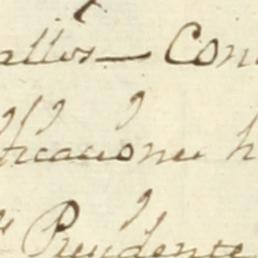 allos— Con
tificaciones h
Presidente